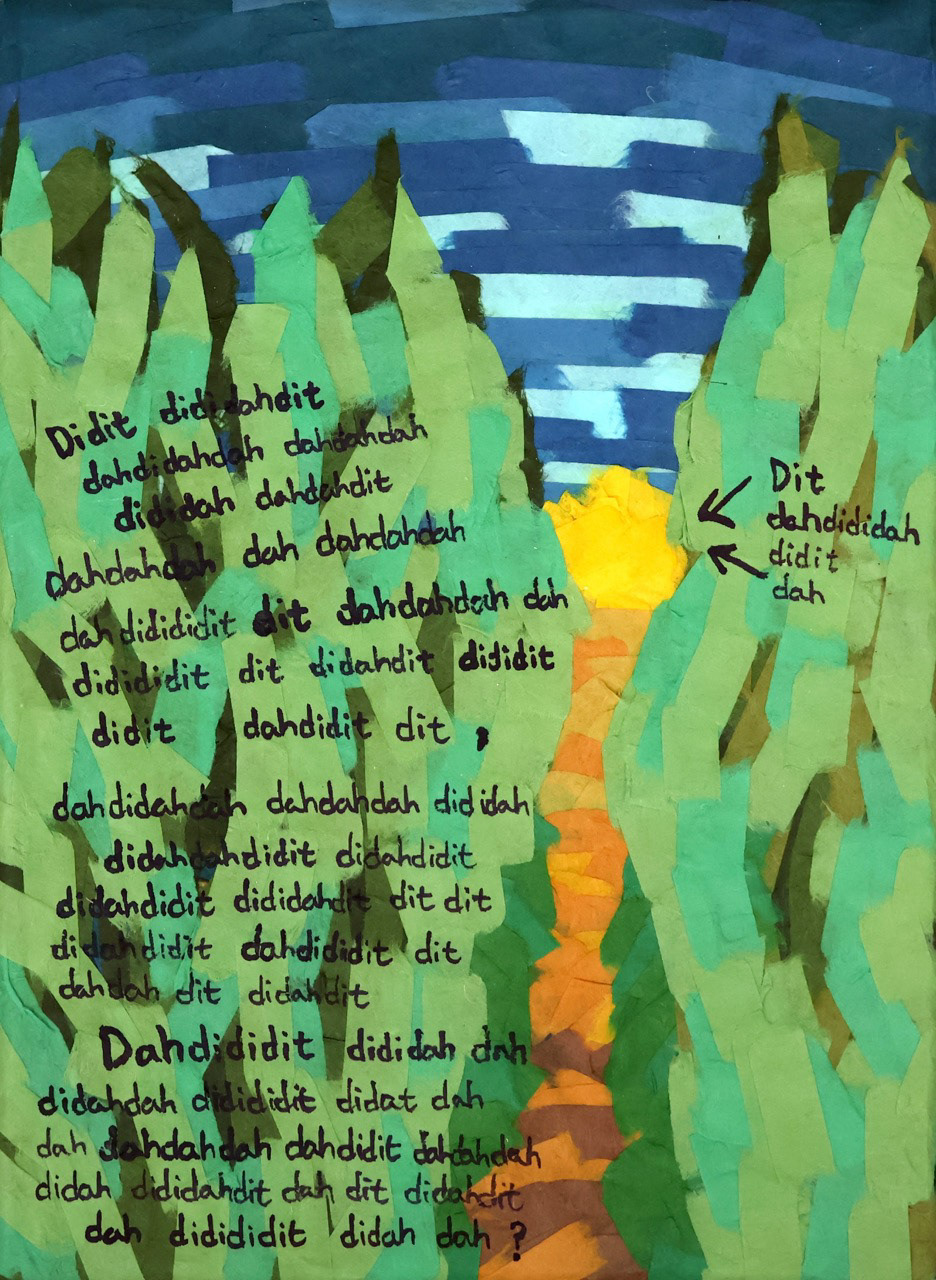 Didit dididahdit
dahdidahdah dahdahdah
dididah dahdahdit
dahdahdah dah dahdahdah
dahdidididit dit dahdahdah dah
didididit dit didahdit dididit
didit dahdidit dit ,
dahdidahdah dahdahdah dididah
didahdahdidit didahdidit
didahdidit dididahdit dit dit
didahdidit dahdididit dit
dahdah dit didahdit
Dahdididit dididah dah
didahdah didididit didat dah
dah dahdahdah dahdidit dahdahdah
didah dididahdit dah dit didahdit
dah didididit didah dah ?
Dit
dahdididah
didit
dah